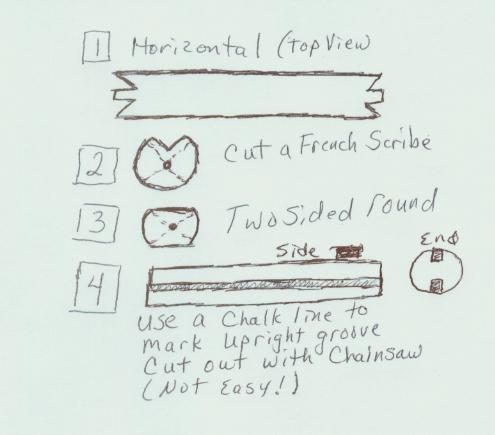 1 Horizontal (top View
2 Cut a French Scribe
3 Two Sided round
Side End
4
Use a Chalk line to
mark Upright groove
Cut out with Chainsaw
(Not Easy!)